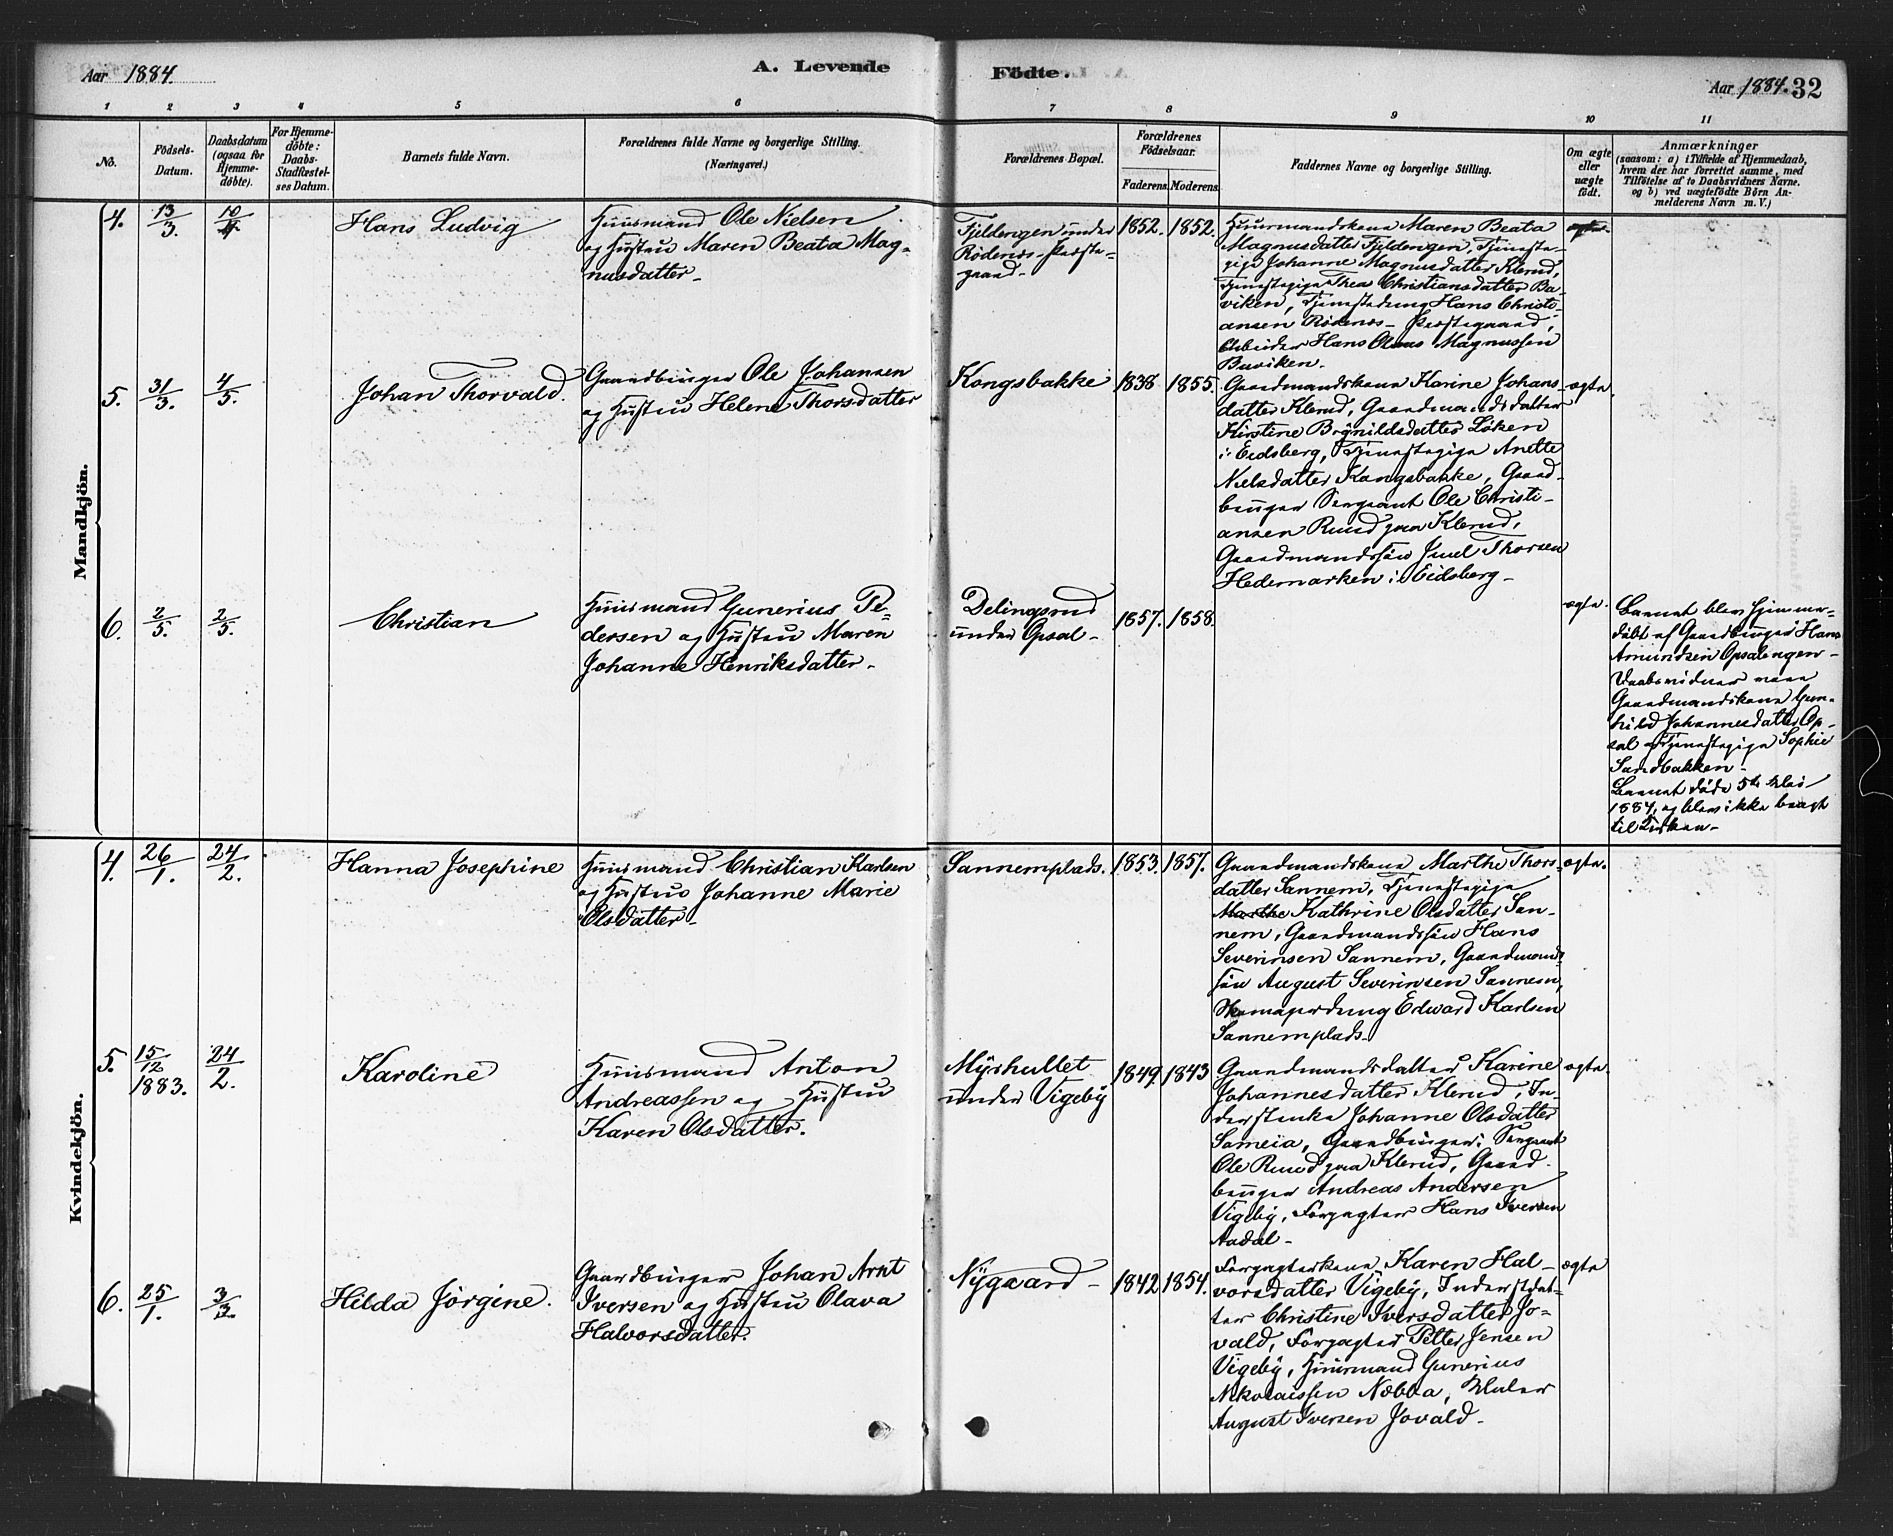 Aar 1884.
A. Levende
Födte.
Aar 1884. 32
1 2 3 4 5 6 7 8 9 10 11
No.
Födsels-
Datum.
Daabsdatum
(ogsaa for
Hjemme-
döbte).
For Hjemme-
döbte:
Daabs-
Stadfæstel-
ses Datum.
Barnets fulde Navn.
Forældrenes fulde Navne og borgerlige Stilling.
(Næringsvei.)
Forældrenes Bopæl.
Forældrenes
Födselsaar.
Faderens. Moderens.
Faddernes Navne og borgerlige Stilling.
Om ægte
eller
uægte
födt.
Anmærkninger
(saasom: a) i Tilfælde af Hjemmedaab,
hvem der har forrettet samme, med
Tilföielse af to Daabsvidners Navne.
og b) ved uægtefödte Börn An-
melderens Navn m. V.)
Mandkjön.
4. 13/3. 10/4.
Hans Ludvig
Huusmand Ole Nielsen
og Hustru Maren Beata Mag-
nusdatter-
Fjeldengen under
Rödenes-Præste-
gaard-
1852. 1852.
Huusmandskone Maren Beata
Magnusdatter Fjeldengen, Tjeneste-
pige Johanne Magnusdatter Klerud,
Tjenestepige Thea Christiansdatter Ba-
viken, Tjenestedreng Hans Christi-
ansen Rödenes-Præstegaard,
Arbeider Hans Olaus Magnussen
Baviken.
ægte.
5. 31/3. 4/5.
Johan Thorvald.
Gaardbruger Ole Johansen
og Hustru Helene Thorsdatter
Kongsbakke
1838 1855.
Gaardmandskone Karine Johans-
datter Klerud, Gaardmandsdatter
Kirstine Brynildsdatter Löken
i Eidsberg, Tjenestepige Anette
Nielsdatter Kongsbakke, Gaard-
bruger Sergeant Ole Christi-
ansen Ruud paa Klerud,
Gaardmandssön Juul Thorsen
Hedemarken i Eidsberg-
ægte.
6. 2/5. 2/5.
Christian
Huusmand Gunerius Pe-
dersen og Hustru Maren
Johanne Henriksdatter-
Delingsrud
under Opsal-
1857. 1858.
ægte.
Barnet blev hjemme-
döbt af Gaardbruger Hans
Amundsen Opsalengen-
Daabsvidner vare
Gaardmandskone Gun-
hild Johannesdatter Op-
sal og Tjenestepige Sophie
Sandbakken-
Barnet döde 5te Mai
1884, og blev ikke bragt
til Kirken-
Kvindekjön.
4. 26/1. 24/2.
Hanna Josephine
Huusmand Christian Karlsen
og Hustru Johanne Marie
Olsdatter-
Sannemplads.
1853. 1857.
Gaardmandskone Marthe Thors-
datter Sannem, Tjenestepige
Marthe Kathrine Olsdatter San-
nem, Gaardmandssön Hans
Severinsen Sannem, Gaardmands-
sön August Severinsen Sannem,
Skomagerdreng Edward Karlsen
Sannemplads-
ægte.
5. 15/12 1883. 24/2.
Karoline
Huusmand Anton
Andreassen og Hustru
Karen Olsdatter.
Myrhullet
under Vigeby
1849. 1843
Gaardmandsdatter Karine
Johannesdatter Klerud, In-
derstenke Johanne Olsdatter
Sameia, Gaardbruger, Sergeant
Ole Ruud paa Klerud, Gaard-
bruger Andreas Andersen
Vigeby, Forpagter Hans Iversen
Aadal-
ægte.
6. 25/1. 3/3.
Hilda Jörgine.
Gaardbruger Johan Arnt
Iversen og Hustru Olava
Halvorsdatter.
Nygaard-
1842 1854.
Forpagterkone Karen Hal-
vorsdatter Vigeby, Inderstdat-
ter Christine Iversdatter Jo-
vald, Forpagter Petter Jensen
Vigeby, Huusmand Gunerius
Nikolaissen Næbba, Maler
August Iversen Jovald-
ægte